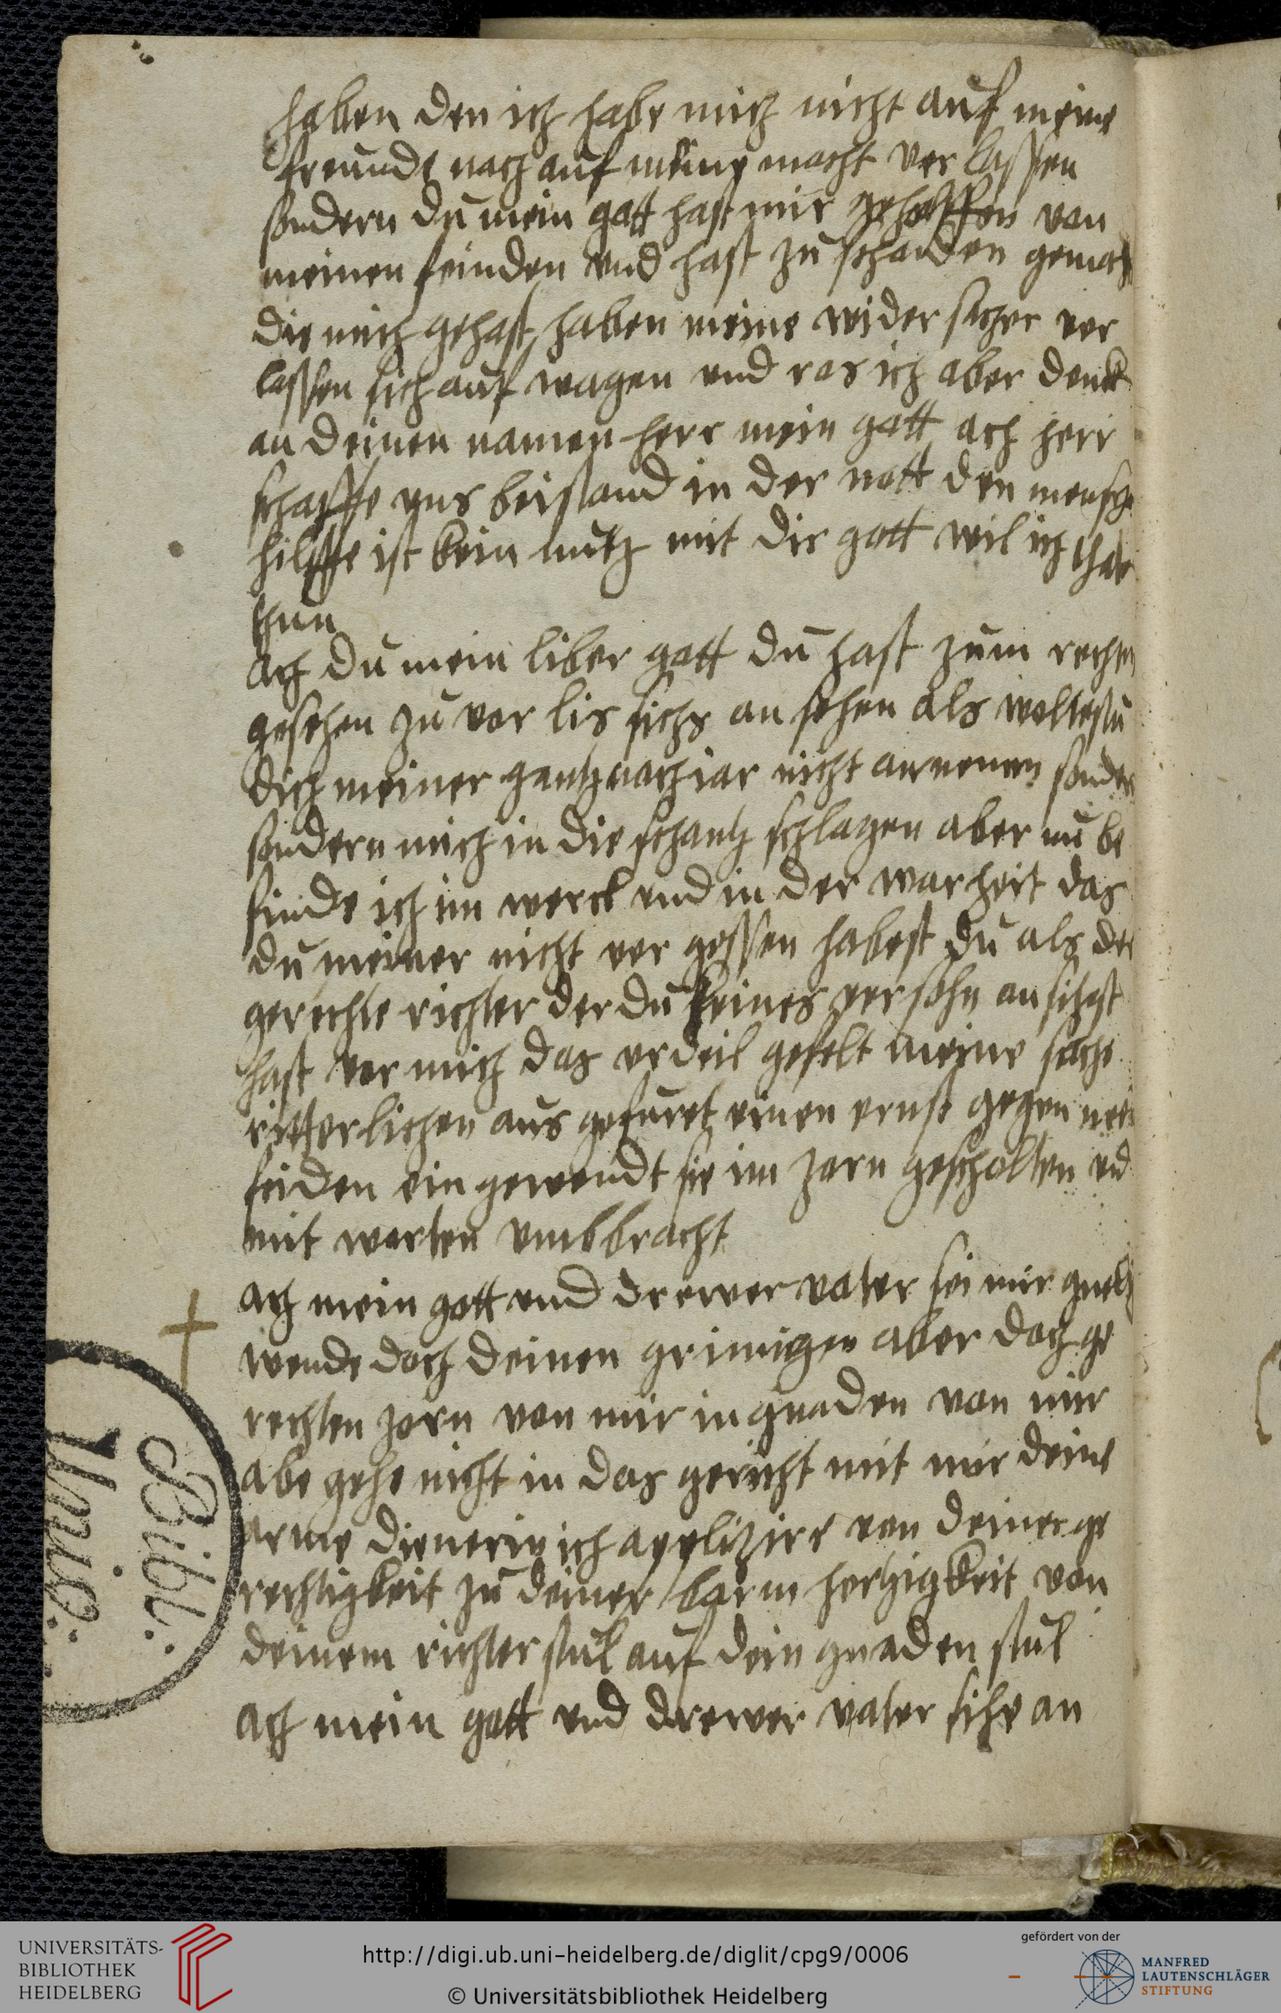 haben den ich habe mich nicht auf meine
freunde noch auf meine macht ver lassen
sondern du mein gott hast mir geholffen von
meinen feinden vnd hast zu schanden gemach
die mich gehast haben meine wider sacher ver
lassen sich auf wagen vnd ros ich aber denk
an deinen namen herr mein gott ach herr
schaffe vns beistand in der nott den mensche
hilffe ist kein nutz mit dir gott wil ich thate
thun
Ach du mein liber gott du hast zum rechten
gesehen zu vor lis sichs an sehen als woltestu
dich meiner gantz noch iar nicht annemen sonder
sondern mich in die schantz schlagen aber nu be
finde ich im werck vnd in der warheit das
du meiner nicht ver gessen habest du als der
gerechte richter der du keines persohn ansihest
hast vor mich das vrdeil gefelt meine sache
ritterlichen aus gefuret einen ernst gegen mei
feiden ein gewendt sie im zorn gescholten vnd
mit worten vmbbracht
ach mein gott vnd drewer vater sei mir gnedig
wende doch deinen grimigen aber doch ge
rechten zorn von mir in gnaden von mir
abe gehe nicht in das gericht mit mir deine
arme dienerin ich appelizire von deiner ge
rechtigkeit zu deiner barm hertzigkeit von
deinem richter stul auf dein gnaden stul
Ach mein gott vnd drewer vater sihe an
Bibl.
Univ.
UNIVERSITÄTS-
BIBLIOTHEK
HEIDELBERG
http://digi.ub.uni-heidelberg.de/diglit/cpg9/0006
© Universitätsbibliothek Heidelberg
gefördert von der
MANFRED
LAUTENSCHLÄGER
STIFTUNG